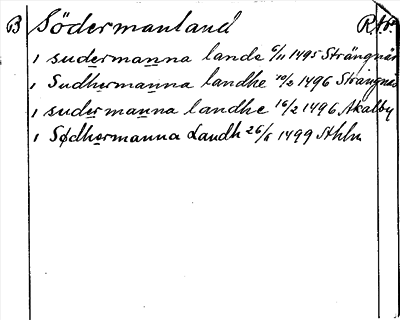 B Södermanland R Ap.
i sudermanna lande 6/11 1495 Strängnäs
i Sudhermanna landhe 10/2 1496 Strängnäs
i sudermanna landhe 16/2 1496 Åkalby
i Sødhermanna Landh 26/6 1499 Sthlm